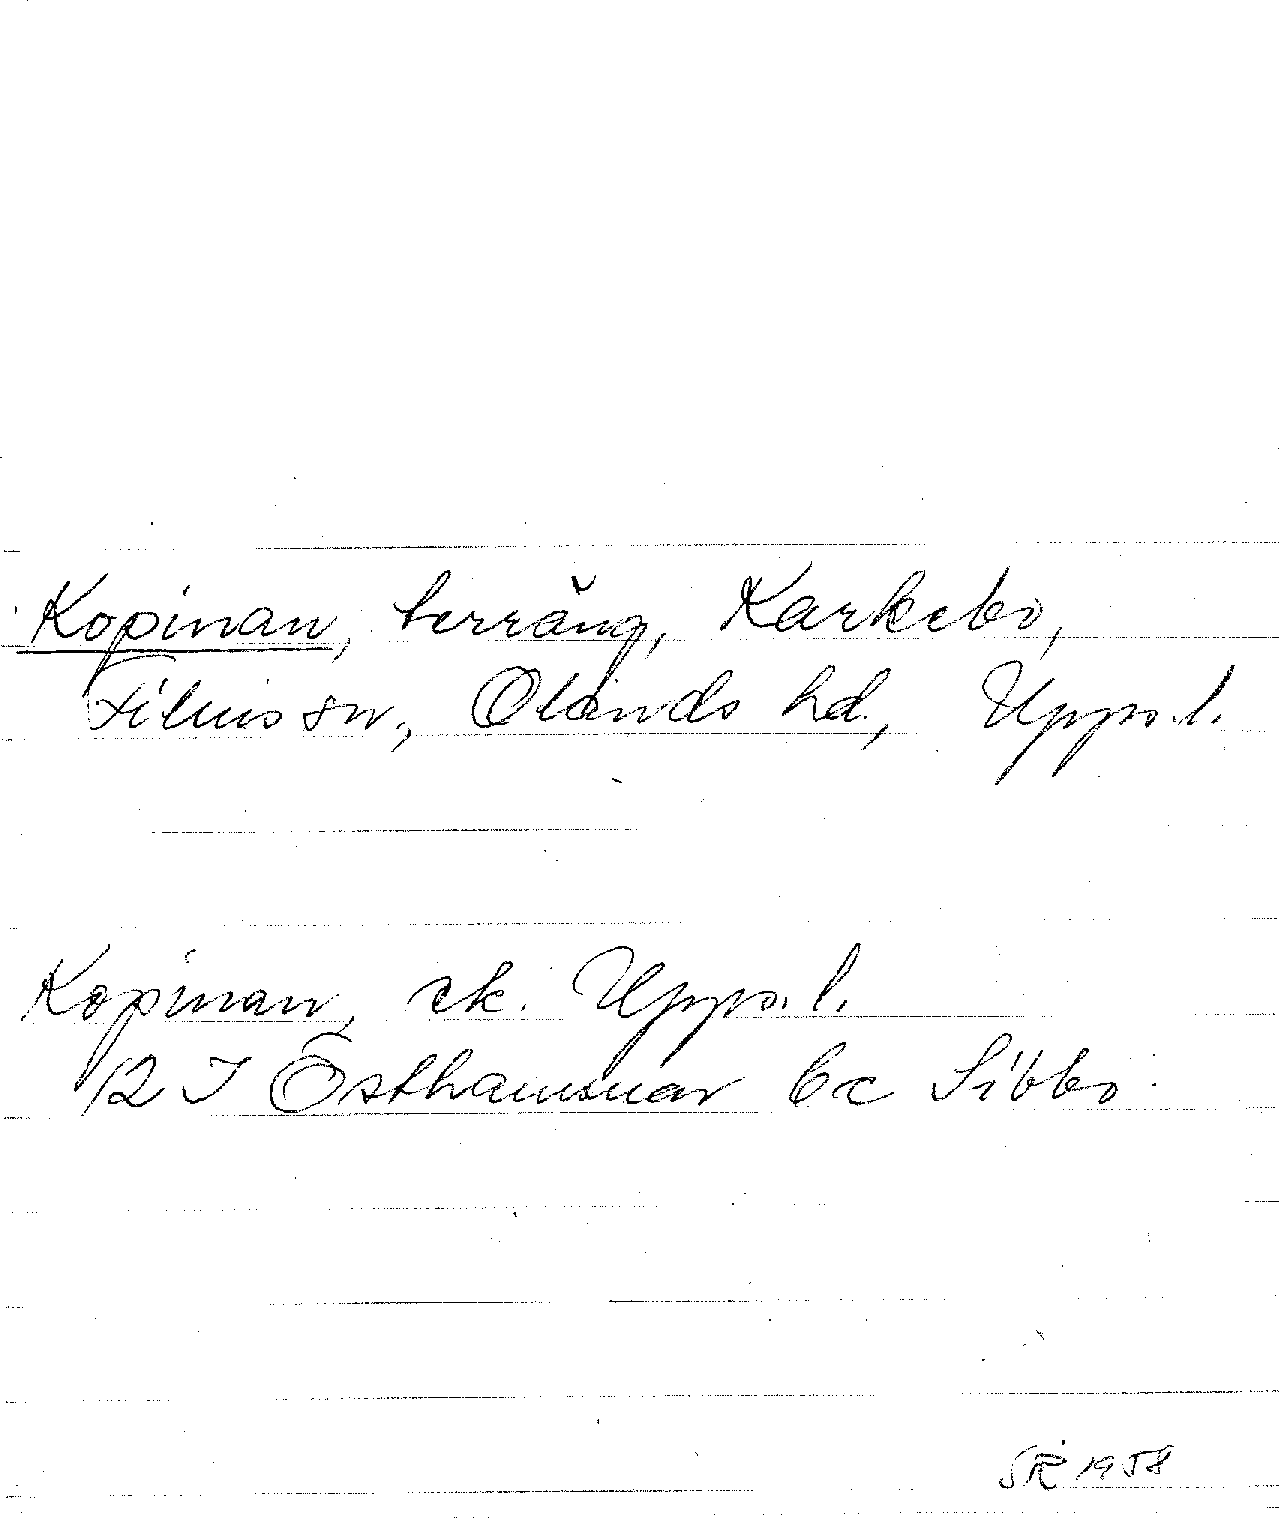 Kopinan, terräng, Karkebo,
Films sn, Olands hd, Upps. l.
Kopinan, ek. Upps. l.
12 I Östhammar 6c Sibbo
SR 1958